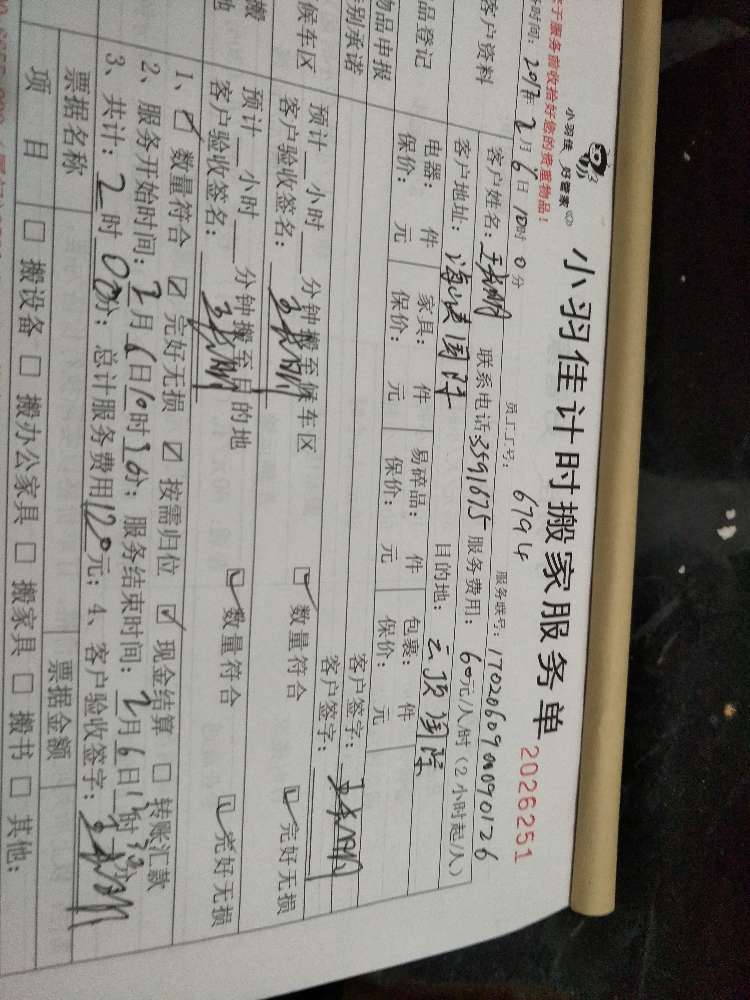 小羽佳 好管家
小羽佳计时搬家服务单
于服务前收拾好您的贵重物品!
2026251
时间: 2017年2月6日10时0分 员工工号: 6794 服务联号: 1702060900090126
客户资料
客户姓名: 联系电话 3591675 服务费用: 60元/人/时(2小时起/人)
客户地址: 海峡国际 目的地: 云顶国际
品登记
电器: 件 家具: 件 易碎品: 件 包裹: 件
保价: 元 保价: 元 保价: 元 保价: 元
物品申报
客户签字:
别承诺
客户签字:
候车区
预计 小时 分钟搬至候车区
客户验收签名: 数量符合 完好无损
搬
地
预计 小时 分钟搬至目的地
客户验收签名: 数量符合 完好无损
1、 数量符合 完好无损 按需归位 现金结算 转账汇款
2、服务开始时间: 2月6日10时30分; 服务结束时间: 2月6日 时30分
3、共计: 2时00分; 总计服务费用120元; 4、客户验收签字:
票据名称 票据金额
项 目 搬设备 搬办公家具 搬家具 搬书 其他: